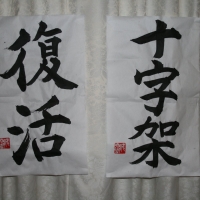 十字架
復活